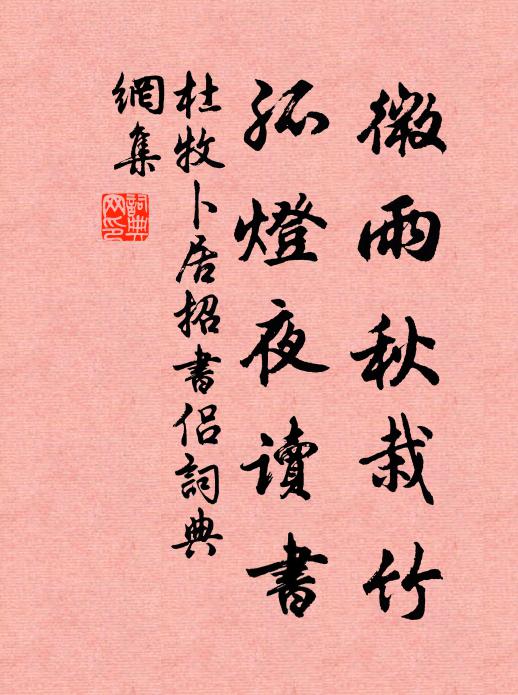 微雨秋栽竹
孤燈夜讀書
杜牧卜居招書侶詞典
網集
詞典
网印